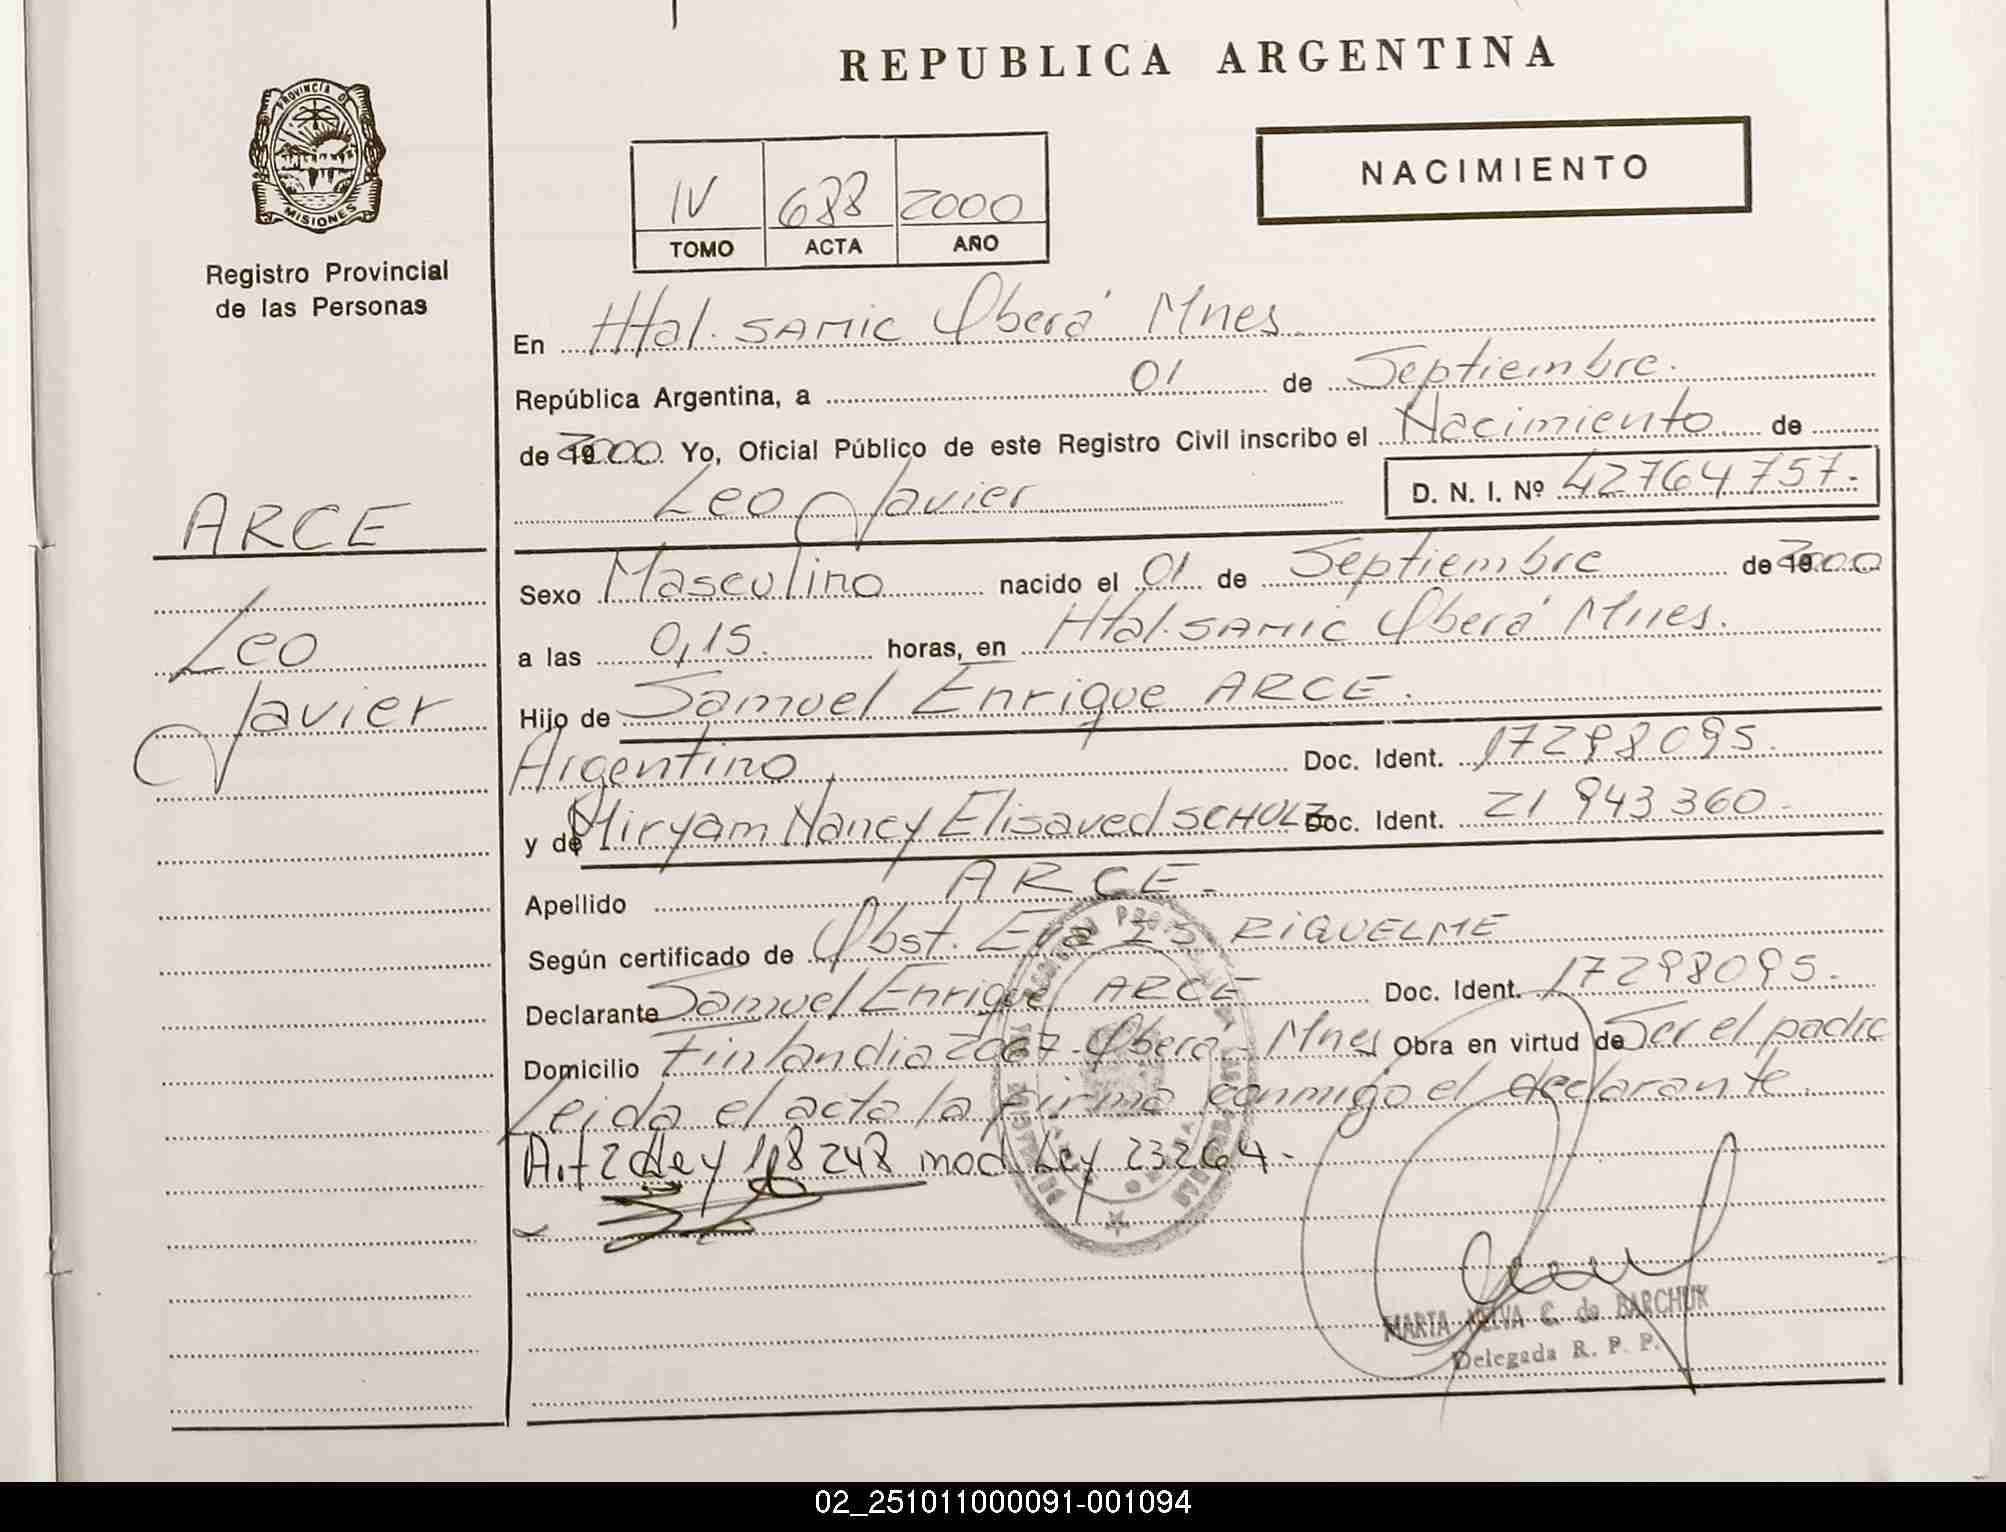 REPUBLICA ARGENTINA
PROVINCIA DE
MISIONES
Registro Provincial
de las Personas
NACIMIENTO
IV 688 2000
TOMO ACTA AÑO
ARCE
Leo
Javier
En Htal. SAMIC Oberá Mnes
República Argentina, a 01 de Septiembre.
de 2000 Yo, Oficial Público de este Registro Civil inscribo el Nacimiento de
Leo Javier D. N. I. Nº 42764757.-
Sexo Masculino nacido el 01 de Septiembre de 2000
a las 0,15. horas, en Htal. SAMIC Oberá Mnes.
Hijo de Samuel Enrique ARCE.
Argentino, Doc. Ident. 17298095.
y de Miryam Nancy Elisaved SCHOLZ Doc. Ident. 21 943 360.-
Apellido ARCE.-
Según certificado de Obst. Eva I S RIQUELME
Declarante Samuel Enrique ARCE Doc. Ident. 17298095.
Domicilio Finlandia 2067-Oberá-Mnes Obra en virtud de Ser el padre
Leida el acta la firma conmigo el declarante.
Art 2 Ley 18248 mod. Ley 23264.-
MARTA C. de BARCHUK
Delegada R. P. P.
02_251011000091-001094